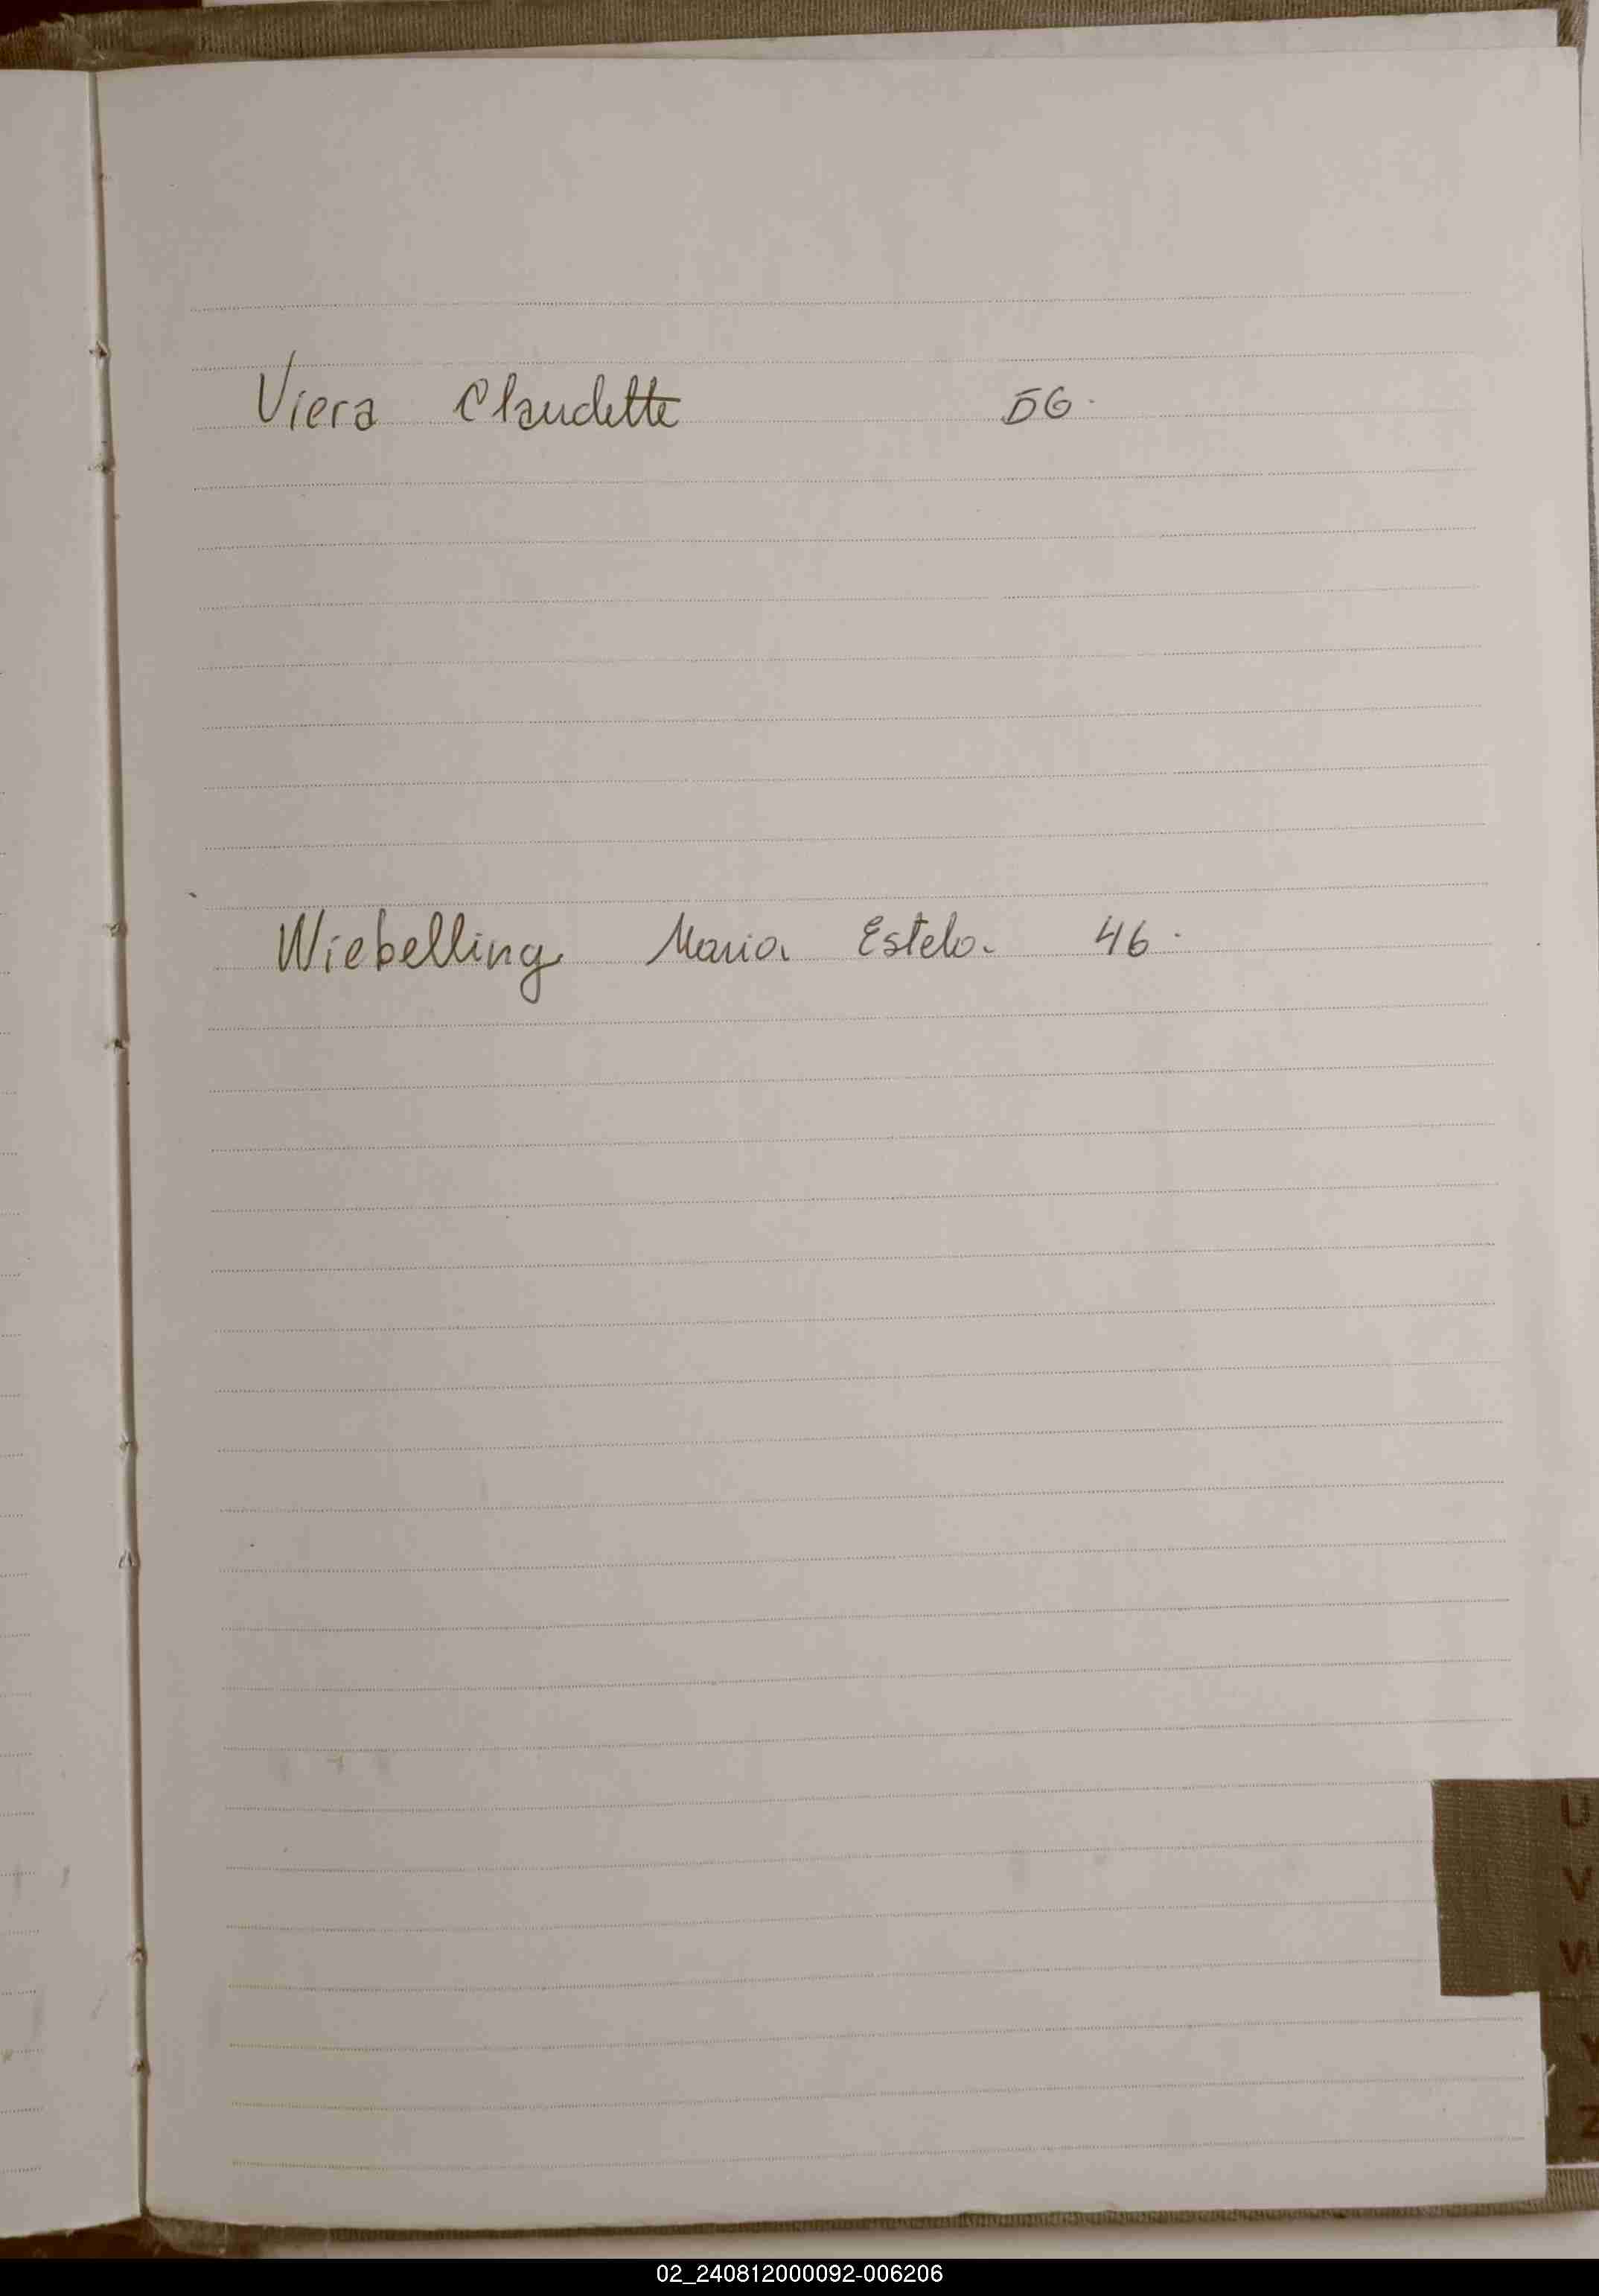 Viera Claudette 56.
Wiebelling Maria Estela 46.
U
V
W
Y
Z
02_240812000092-006206